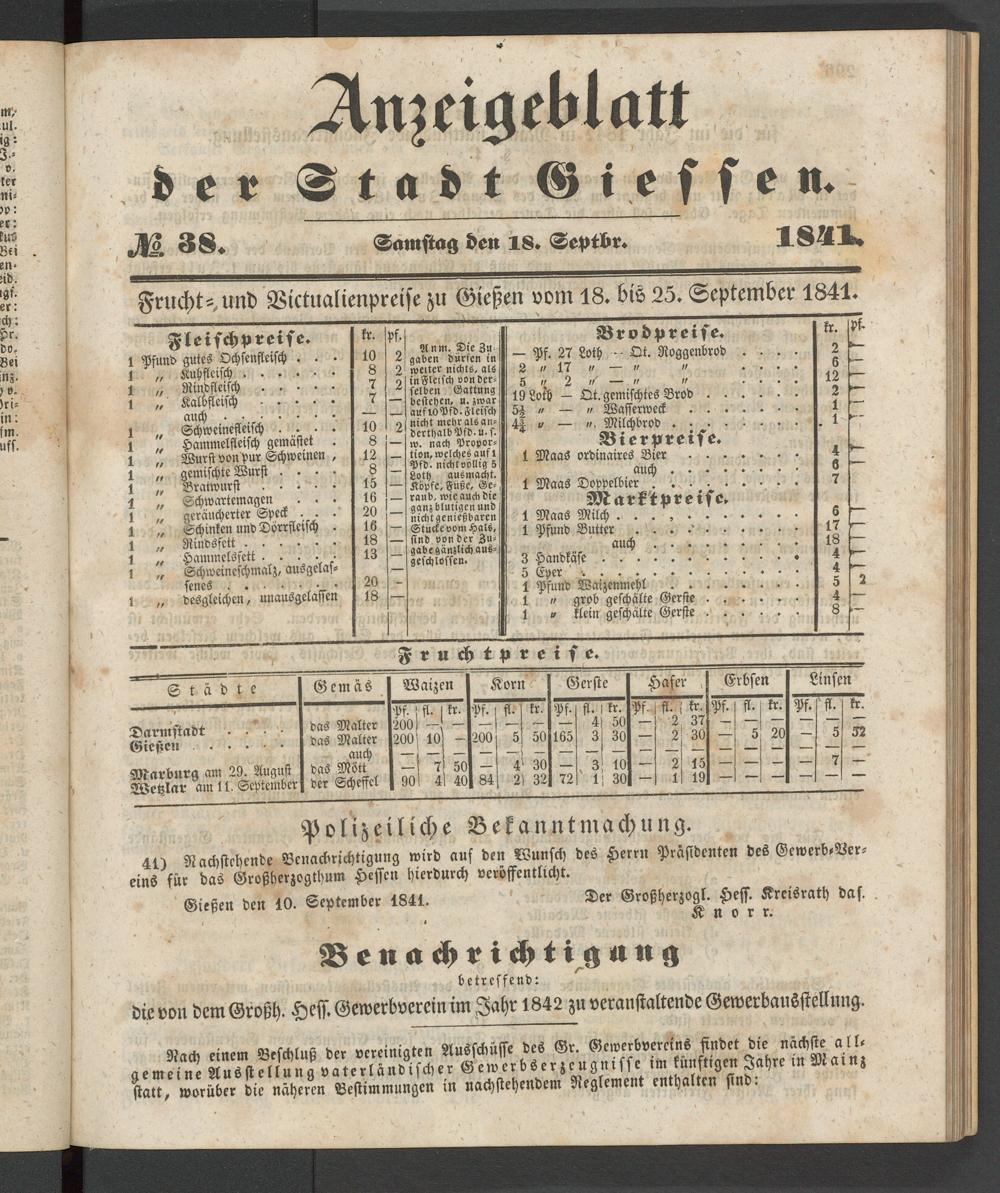 Anzeigeblatt
der Stadt Giessen.
№ 38. Samstag den 18. Septbr. 1841.
Frucht- und Victualienpreise zu Gießen vom 18. bis 25. September 1841.
Fleischpreise. kr. pf.
1 Pfund gutes Ochsenfleisch . . . 10 2
1 „ Kuhfleisch . . . . . . 8 2
1 „ Rindfleisch . . . . . . 7 2
1 „ Kalbfleisch . . . . . . 7 —
auch . . . . . . — —
1 „ Schweinefleisch . . . . 10 2
1 „ Hammelfleisch gemästet . 8 —
1 „ Wurst von pur Schweinen , 12 —
1 „ gemischte Wurst . . . . 8 —
1 „ Bratwurst . . . . . . 15 —
1 „ Schwartemagen . . . . 16 —
1 „ geräucherter Speck . . . 20 —
1 „ Schinken und Dörrfleisch . 16 —
1 „ Rindsfett . . . . . . 18 —
1 „ Hammelsfett . . . . . 13 —
1 „ Schweineschmalz, ausgelas-
senes . . . . . . . 20 —
1 „ desgleichen, unausgelassen 18 —
Anm. Die Zu-
gaben dürfen in
weiter nichts, als
in Fleisch von der-
selben Gattung
bestehen, u. zwar
auf 10 Pfd. Fleisch
nicht mehr als an-
derthalb Pfd. u. s.
w. nach Propor-
tion, welches auf 1
Pfd. nicht völlig 5
Loth ausmacht.
Köpfe, Füße, Ge-
raub, wie auch die
ganz blutigen und
nicht genießbaren
Stücke vom Hals,
sind von der Zu-
gabe gänzlich aus-
geschlossen.
Brodpreise. kr. pf.
— Pf. 27 Loth — Qt. Roggenbrod . . . . 2 —
2 „ 17 „ — „ „ . . . . 6 —
5 „ 2 „ — „ „ . . . . 12 —
19 Loth — Qt. gemischtes Brod . . . . . 2 —
5½ „ — „ Wasserweck . . . . . 1 —
4¾ „ — „ Milchbrod . . . . . 1 —
Bierpreise.
1 Maas ordinaires Bier . . . . . 4 —
auch . . . . . 6 —
1 Maas Doppelbier . . . . . 7 —
Marktpreise.
1 Maas Milch . . . . . . . 6 —
1 Pfund Butter . . . . . . 17 —
auch . . . . . . 18 —
3 Handkäse . . . . . . . 4 —
5 Eyer . . . . . . . . 4 —
1 Pfund Waizenmehl . . . . . 5 2
1 „ grob geschälte Gerste . . . . 4 —
1 „ klein geschälte Gerste . . . . 8 —
Fruchtpreise.
Städte Gemäs Waizen Korn Gerste Hafer Erbsen Linsen
Pf. fl. kr. Pf. fl. kr. Pf. fl. kr. Pf. fl. kr. Pf. fl. kr. Pf. fl. kr.
Darmstadt . . . . das Malter 200 — — — — — — 4 50 — 2 37 — — — — — —
Gießen . . . . das Malter 200 10 — 200 5 50 165 3 30 — 2 30 — 5 20 — 5 52
auch — — — — — — — — — — — — — — — — — —
Marburg am 29. August das Mött — 7 50 — 4 30 — 3 10 — 2 15 — — — — 7 —
Wetzlar am 11. September der Scheffel 90 4 40 84 2 32 72 1 30 — 1 19 — — — — — —
Polizeiliche Bekanntmachung.
41) Nachstehende Benachrichtigung wird auf den Wunsch des Herrn Präsidenten des Gewerb-Ver-
eins für das Großherzogthum Hessen hierdurch veröffentlicht.
Gießen den 10. September 1841. Der Großherzogl. Hess. Kreisrath das.
Knorr.
Benachrichtigung
betreffend:
die von dem Großh. Hess. Gewerbverein im Jahr 1842 zu veranstaltende Gewerbausstellung.
Nach einem Beschluß der vereinigten Ausschüsse des Gr. Gewerbvereins findet die nächste all-
gemeine Ausstellung vaterländischer Gewerbserzeugnisse im künftigen Jahre in Mainz
statt, worüber die näheren Bestimmungen in nachstehendem Reglement enthalten sind: